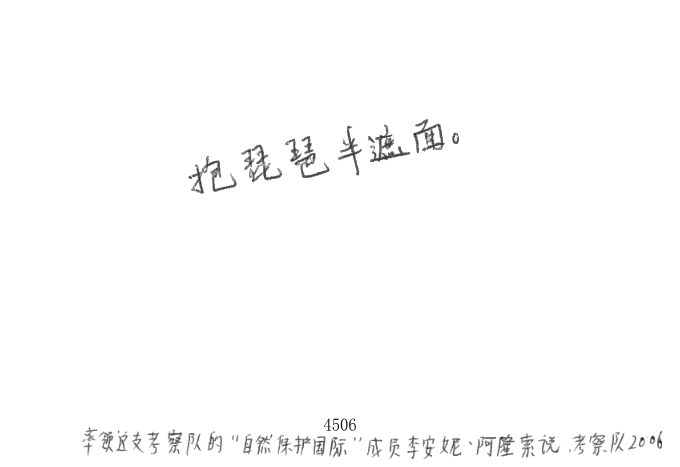 抱琵琶半遮面。
4506
率领这支考察队的“自然保护国际”成员李安妮·阿隆索说,考察队2006